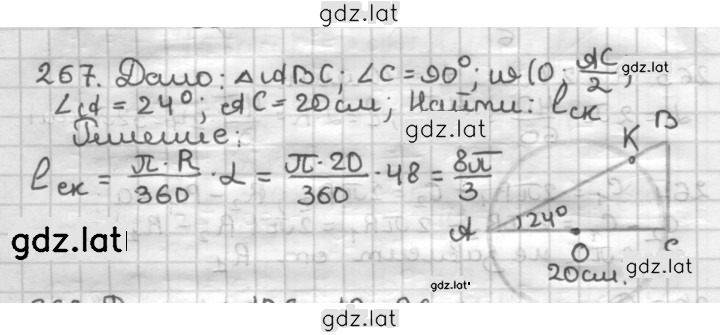 gdz.lat
267. Дано: △ABC; ∠C = 90°; w(O; AC/2; gdz.lat
∠A = 24°; AC = 20см; Найти: l ск
Решение: gdz.lat
l ск = π·R/360 · α = π·20/360 · 48 = 8π/3
K
B
A
24°
C
O
20см.
gdz.lat
gdz.lat
gdz.lat
gdz.lat